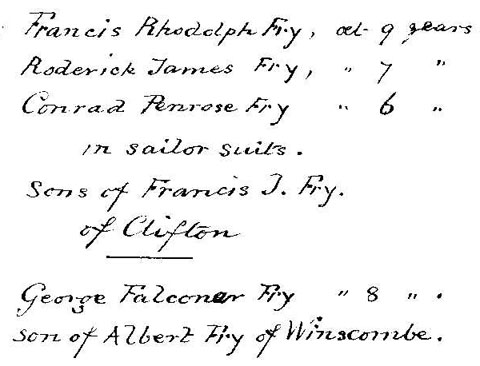 Francis Rhodolph Fry, æt. 9 years
Roderick James Fry, " 7 "
Conrad Penrose Fry " 6 "
in sailor suits.
Sons of Francis J. Fry.
of Clifton
George Falconer Fry " 8 " .
son of Albert Fry of Winscombe.